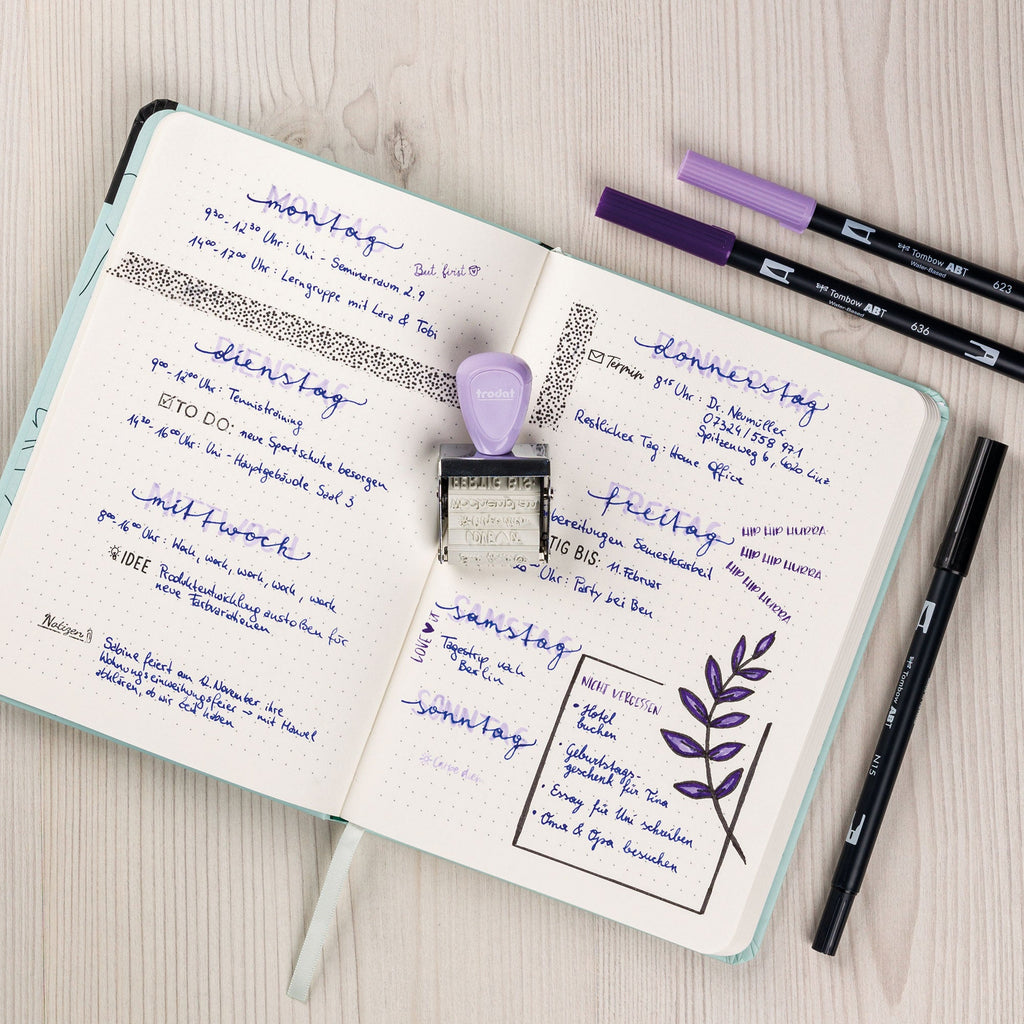 MONTAG
montag
9³⁰ - 12³⁰ Uhr: Uni - Seminarraum 2.9
But first
14⁰⁰ - 17⁰⁰ Uhr: Lerngruppe mit Lara & Tobi
DIENSTAG
dienstag
9⁰⁰ - 12⁰⁰ Uhr: Tennistraining
TO DO: neue Sportschuhe besorgen
14³⁰ - 16⁰⁰ Uhr: Uni - Hauptgebäude Saal 3
MITTWOCH
mittwoch
8⁰⁰ - 16⁰⁰ Uhr: Work, work, work, work, work
IDEE Produktentwicklung anstoßen für
neue Farbvariationen
Notizen
Sabine feiert am 12. November ihre
Wohnungseinweihungsfeier → mit Manuel
abklären, ob wir Zeit haben
DONNERSTAG
donnerstag
Termin 8¹⁵ Uhr: Dr. Neumüller
07324/558 971
Spitzenweg 6, 4020 Linz
Restlicher Tag: Home Office
FREITAG
freitag
bereitungen Semesterarbeit
TIG BIS: 11. Februar
Uhr: Party bei Ben
HIP HIP HURRA
HIP HIP HURRA
HIP HIP HURRA
SAMSTAG
samstag
LOVE
Tagestrip nach
Berlin
SONNTAG
sonntag
Carpe diem
NICHT VERGESSEN
• Hotel
buchen
• Geburtstags-
geschenk für Tina
• Essay für Uni schreiben
• Oma & Opa besuchen
trodat
Tombow ABT
Water-Based
623
Tombow ABT
Water-Based
636
Tombow ABT
N15